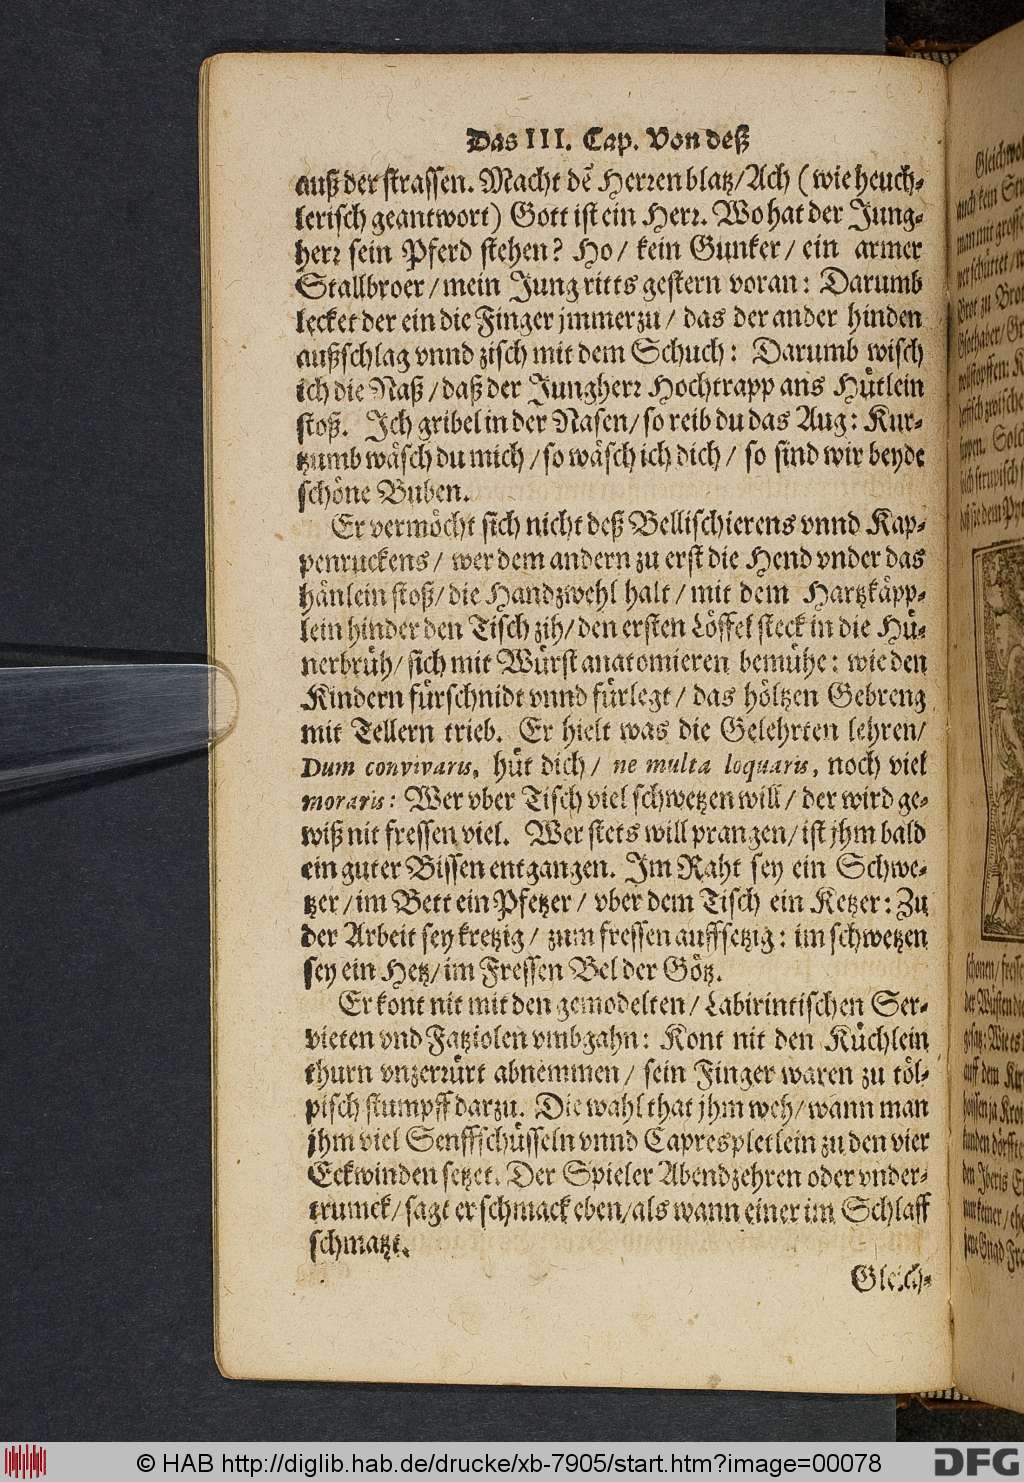 Das III. Cap. Von deß
auß der strassen. Macht dẽ Herꝛen blatz/Ach (wie heuch⸗
lerisch geantwort) Gott ist ein Herꝛ. Wo hat der Jung⸗
herꝛ sein Pferd stehen? Ho/ kein Gunker/ ein armer
Stallbroer/mein Jung ritts gestern voran: Darumb
lecket der ein die Finger jmmerzu/ das der ander hinden
außschlag vnnd zisch mit dem Schuch: Darumb wisch
ich die Naß/daß der Jungherꝛ Hochtrapp ans Hütlein
stoß. Ich gribel in der Nasen/so reib du das Aug: Kur⸗
tzumb wäsch du mich/so wäsch ich dich/ so sind wir beyde
schöne Buben.
Er vermöcht sich nicht deß Bellischierens vnnd Kap⸗
penruckens/ wer dem andern zu erst die Hend vnder das
hänlein stoß/die Handzwehl halt/mit dem Hartzkäpp⸗
lein hinder den Tisch zih/den ersten Löffel steck in die Hü⸗
nerbrüh/sich mit Würst anatomieren bemühe: wie den
Kindern fürschnidt vnnd fürlegt/ das höltzen Gebreng
mit Tellern trieb. Er hielt was die Gelehrten lehren/
Dum convivaris, hüt dich/ ne multa loquaris, noch viel
moraris: Wer vber Tisch viel schwetzen will/der wird ge⸗
wiß nit fressen viel. Wer stets will prangen/ist jhm bald
ein guter Bissen entgangen. Im Raht sey ein Schwe⸗
tzer/im Bett ein Pfetzer/ vber dem Tisch ein Ketzer: Zu
der Arbeit sey kretzig/ zum fressen auffsetzig: im schwetzen
sey ein Hetz/im Fressen Bel der Götz.
Er kont nit mit den gemodelten/Labirintischen Ser⸗
vieten vnd Fatziolen vmbgahn: Kont nit den Küchlein
thurn vnzerꝛürt abnemmen/ sein Finger waren zu töl⸗
pisch stumpff darzu. Die wahl that jhm weh/wann man
jhm viel Senffschüsseln vnnd Caprespletlein zu den vier
Eckwinden setzet. Der Spieler Abendzehren oder vnder⸗
trunck/sagt er schmack eben/als wann einer im Schlaff
schmatzt.
Gleich⸗
© HAB http://diglib.hab.de/drucke/xb-7905/start.htm?image=00078
DFG